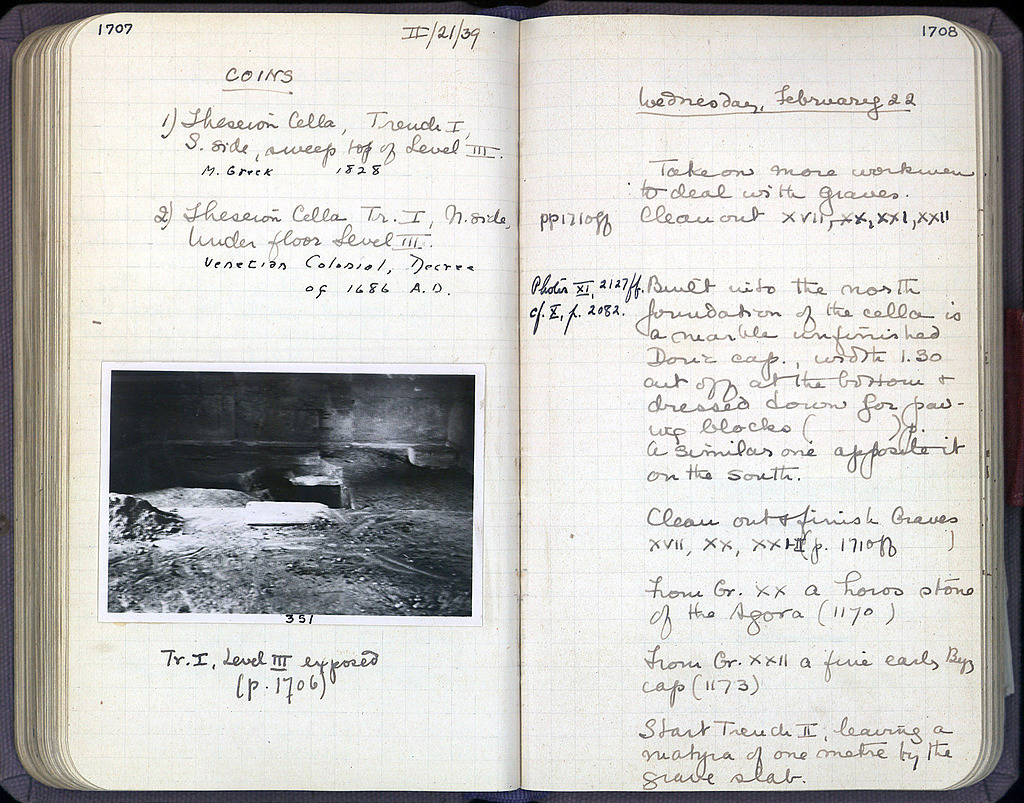 1707
II/21/39
COINS
1) Theseion Cella, Trench I,
S. side, sweep top of Level III.
M. Greek 1828
2) Theseion Cella Tr. I, N. side,
Under floor Level III.
Venetian Colonial, Decree
of 1686 A.D.
351
Tr. I, Level III exposed
(p. 1706)
1708
Wednesday, February 22
Take on more workmen
to deal with graves.
pp1710ff Clean out XVII, XX, XXI, XXII
Photos XI, 2127ff. Built into the north
cf. X, p. 2082. foundation of the cella is
a marble unfinished
Doric cap., width 1.30
cut off at the bottom &
dressed down for pav-
ing blocks ( )p.
A similar one opposite it
on the south.
Clean out & finish Graves
XVII, XX, (p. 1710ff )
From Gr. XX a horos stone
of the Agora (1170 )
From Gr. XXII a fine early Byz
cap (1173)
Start Trench II, leaving a
of one metre by the
grave slab.